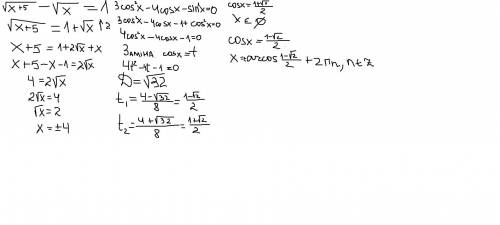 √x+5 - √x = 1
√x+5 = 1+√x ↑2
x+5 = 1+2√x+x
x+5-x-1=2√x
4=2√x
2√x=4
√x=2
x=±4
3cos²x-4cosx-sin²x=0
3cos²x-4cosx-1+cos²x=0
4cos²x-4cosx-1=0
Заміна cosx=t
4t²-4t-1=0
D=√32
t₁=4-√32/8=1-√2/2
t₂=4+√32/8=1+√2/2
cosx=1+√2/2
x∈∅
cosx=1-√2/2
x=±arccos 1-√2/2+2πn, n∈z